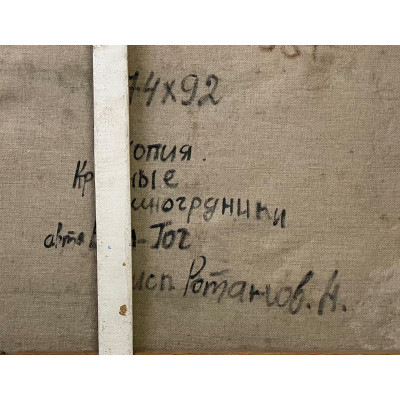 74х92
опия.
Кр ные
иногрдники
авто -Гог
исп Ротанов. Н.